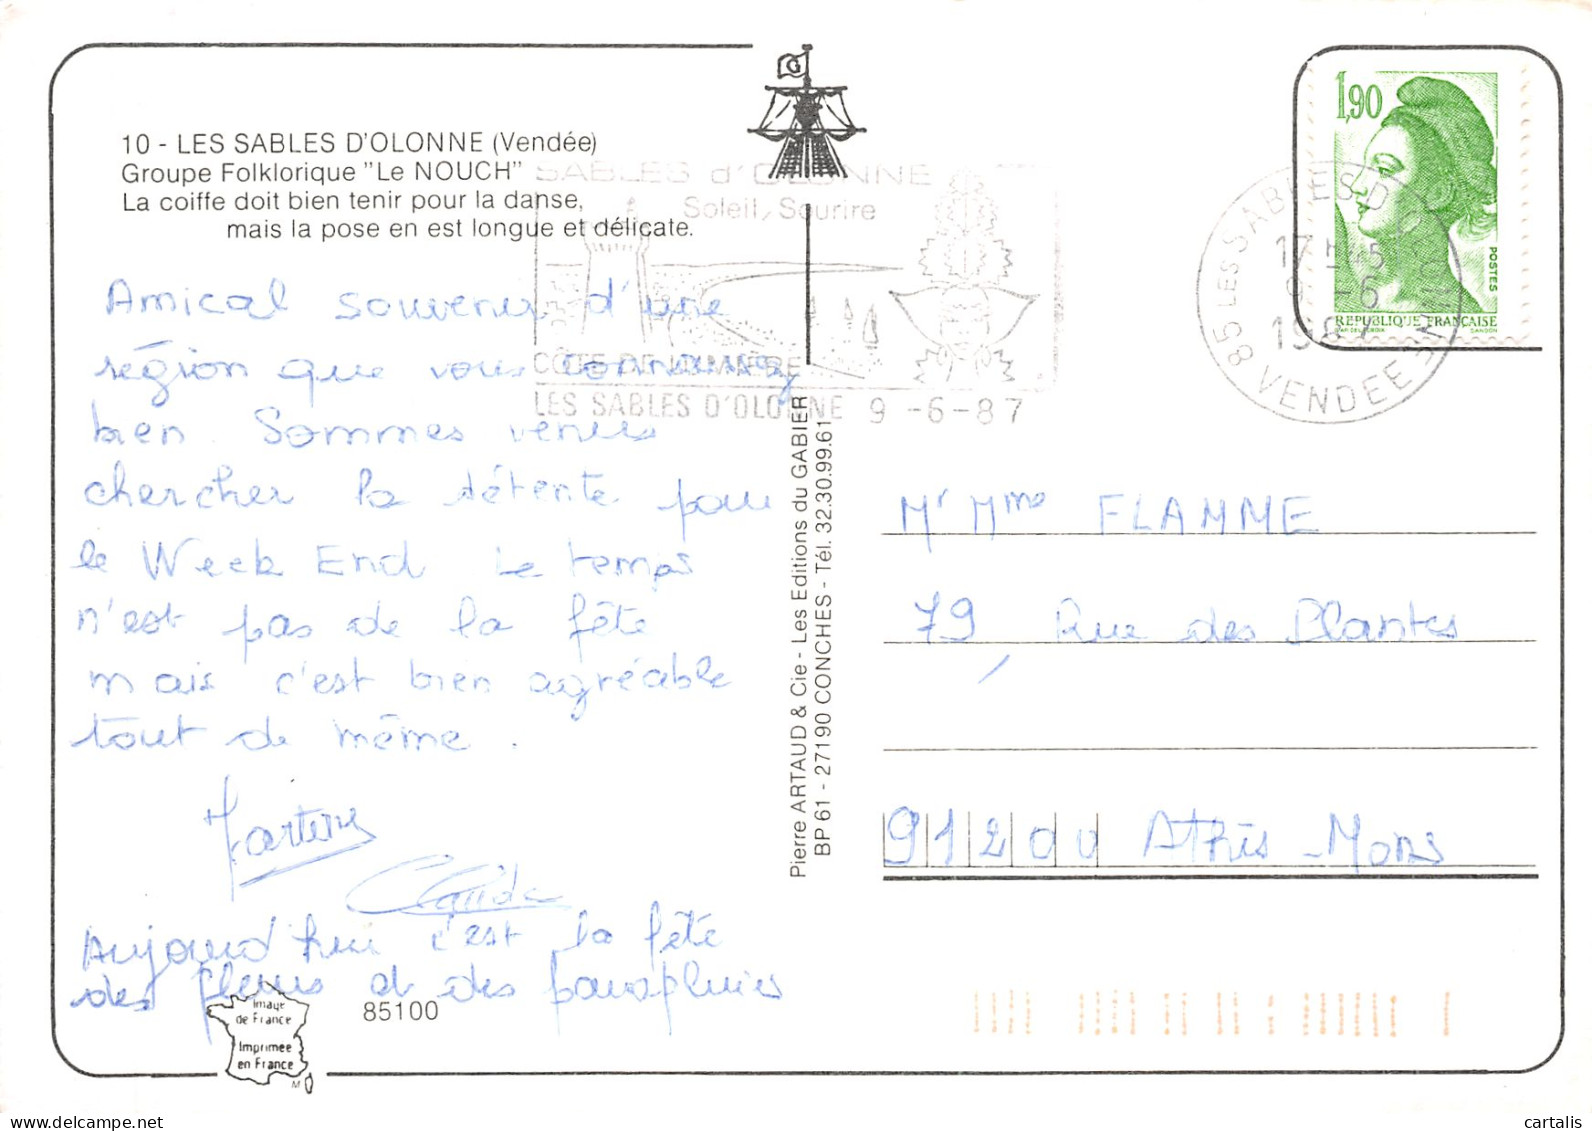 10 - LES SABLES D'OLONNE (Vendée)
Groupe Folklorique "Le NOUCH"
La coiffe doit bien tenir pour la danse,
mais la pose en est longue et délicate.
SABLES d'OLONNE
Soleil, Sourire
CÔTE DE LUMIÈRE
LES SABLES D'OLONNE 9 -6-87
1,90
POSTES
REPUBLIQUE FRANÇAISE
85 LES SABLES D'OLONNE
17H15
9 -6
1987
VENDEE
Amical souvenir d'une
région que vous connaissez
bien. Sommes venus
chercher la détente pour
le Week End Le temps
n'est pas de la fête
mais c'est bien agréable
tout de même.
Martine
Claude
Aujourd'hui c'est la fête
des fleurs et des parapluies
Pierre ARTAUD & Cie - Les Editions du GABIER
BP 61 - 27190 CONCHES - Tél. 32.30.99.61
Mr Mme FLAMME
79, Rue des Plantes
91200 Athis-Mons
Image
de France
Imprimée
en France
85100
delcampe.net
cartalis